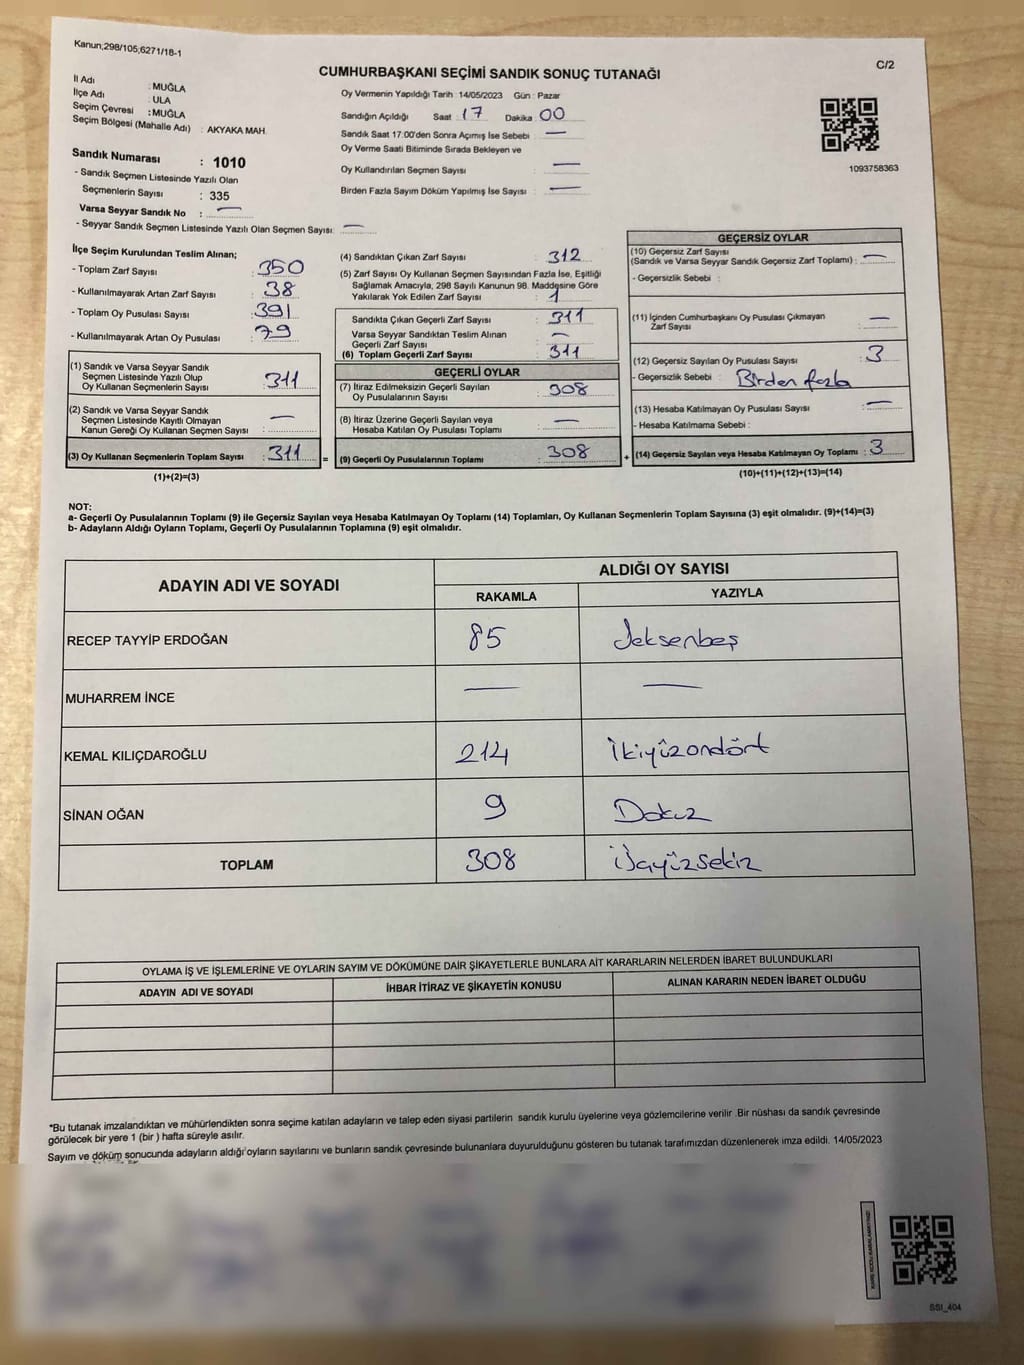 Kanun;298/105;6271/18-1
C/2
CUMHURBAŞKANI SEÇİMİ SANDIK SONUÇ TUTANAĞI
İl Adı : MUĞLA
İlçe Adı : ULA
Seçim Çevresi : MUĞLA
Seçim Bölgesi (Mahalle Adı) : AKYAKA MAH.
Oy Vermenin Yapıldığı Tarih :14/05/2023 Gün : Pazar
Sandığın Açıldığı Saat : 17 Dakika : 00
Sandık Saat 17:00'den Sonra Açımış İse Sebebi : —
Oy Verme Saati Bitiminde Sırada Bekleyen ve
Oy Kullandırılan Seçmen Sayısı : —
Birden Fazla Sayım Döküm Yapılmış İse Sayısı : —
1093758363
Sandık Numarası : 1010
- Sandık Seçmen Listesinde Yazılı Olan
Seçmenlerin Sayısı : 335
Varsa Seyyar Sandık No : —
- Seyyar Sandık Seçmen Listesinde Yazılı Olan Seçmen Sayısı: —
İlçe Seçim Kurulundan Teslim Alınan;
- Toplam Zarf Sayısı : 350
- Kullanılmayarak Artan Zarf Sayısı : 38
- Toplam Oy Pusulası Sayısı : 391
- Kullanılmayarak Artan Oy Pusulası : 79
(1) Sandık ve Varsa Seyyar Sandık
Seçmen Listesinde Yazılı Olup
Oy Kullanan Seçmenlerin Sayısı : 311
(2) Sandık ve Varsa Seyyar Sandık
Seçmen Listesinde Kayıtlı Olmayan
Kanun Gereği Oy Kullanan Seçmen Sayısı : —
(3) Oy Kullanan Seçmenlerin Toplam Sayısı : 311 =
(1)+(2)=(3)
(4) Sandıktan Çıkan Zarf Sayısı : 312
(5) Zarf Sayısı Oy Kullanan Seçmen Sayısından Fazla İse, Eşitliği
Sağlamak Amacıyla, 298 Sayılı Kanunun 98. Maddesine Göre
Yakılarak Yok Edilen Zarf Sayısı : 1
Sandıkta Çıkan Geçerli Zarf Sayısı : 311
Varsa Seyyar Sandıktan Teslim Alınan
Geçerli Zarf Sayısı : —
(6) Toplam Geçerli Zarf Sayısı : 311
GEÇERLİ OYLAR
(7) İtiraz Edilmeksizin Geçerli Sayılan
Oy Pusulalarının Sayısı : 308
(8) İtiraz Üzerine Geçerli Sayılan veya
Hesaba Katılan Oy Pusulası Toplamı : —
(9) Geçerli Oy Pusulalarının Toplamı : 308 +
GEÇERSİZ OYLAR
(10) Geçersiz Zarf Sayısı
(Sandık ve Varsa Seyyar Sandık Geçersiz Zarf Toplamı) : —
- Geçersizlik Sebebi :
(11) İçinden Cumhurbaşkanı Oy Pusulası Çıkmayan
Zarf Sayısı : —
(12) Geçersiz Sayılan Oy Pusulası Sayısı : 3
- Geçersizlik Sebebi : Birden fazla
(13) Hesaba Katılmayan Oy Pusulası Sayısı : —
- Hesaba Katılmama Sebebi :
(14) Geçersiz Sayılan veya Hesaba Katılmayan Oy Toplamı : 3
(10)+(11)+(12)+(13)=(14)
NOT:
a- Geçerli Oy Pusulalarının Toplamı (9) ile Geçersiz Sayılan veya Hesaba Katılmayan Oy Toplamı (14) Toplamları, Oy Kullanan Seçmenlerin Toplam Sayısına (3) eşit olmalıdır. (9)+(14)=(3)
b- Adayların Aldığı Oyların Toplamı, Geçerli Oy Pusulalarının Toplamına (9) eşit olmalıdır.
ADAYIN ADI VE SOYADI
ALDIĞI OY SAYISI
RAKAMLA YAZIYLA
RECEP TAYYİP ERDOĞAN 85 Seksenbeş
MUHARREM İNCE — —
KEMAL KILIÇDAROĞLU 214 İkiyüzondört
SİNAN OĞAN 9 Dokuz
TOPLAM 308 Üçyüzsekiz
OYLAMA İŞ VE İŞLEMLERİNE VE OYLARIN SAYIM VE DÖKÜMÜNE DAİR ŞİKAYETLERLE BUNLARA AİT KARARLARIN NELERDEN İBARET BULUNDUKLARI
ADAYIN ADI VE SOYADI İHBAR İTİRAZ VE ŞİKAYETİN KONUSU ALINAN KARARIN NEDEN İBARET OLDUĞU
*Bu tutanak imzalandıktan ve mühürlendikten sonra seçime katılan adayların ve talep eden siyasi partilerin sandık kurulu üyelerine veya gözlemcilerine verilir .Bir nüshası da sandık çevresinde
görülecek bir yere 1 (bir ) hafta süreyle asılır.
Sayım ve döküm sonucunda adayların aldığı oyların sayılarını ve bunların sandık çevresinde bulunanlara duyurulduğunu gösteren bu tutanak tarafımızdan düzenlenerek imza edildi. 14/05/2023
SSI_404